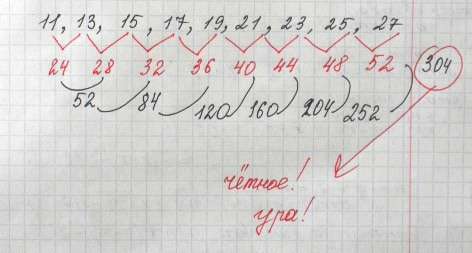 11, 13, 15, 17, 19, 21, 23, 25, 27
24 28 32 36 40 44 48 52 304
52 84 120 160 204 252
чётное!
ура!